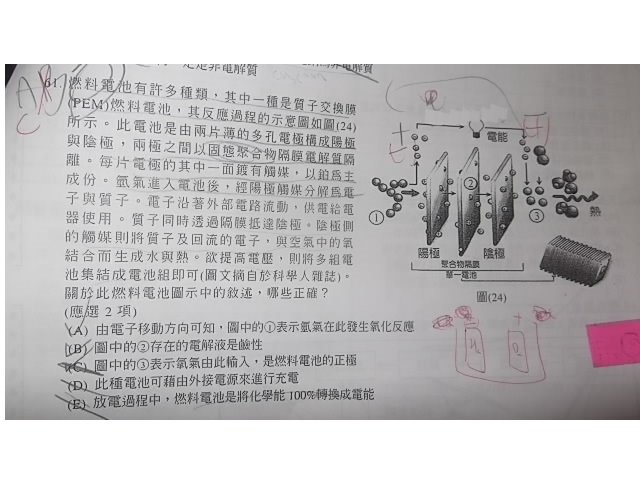 是非電解質
61. 燃料電池有許多種類，其中一種是質子交換膜
(PEM)燃料電池，其反應過程的示意圖如圖(24)
所示。此電池是由兩片薄的多孔電極構成陽極
與陰極，兩極之間以固態聚合物隔膜電解質隔
離。每片電極的其中一面鍍有觸媒，以鉑爲主
成份。氫氣進入電池後，經陽極觸媒分解爲電
子與質子。電子沿著外部電路流動，供電給電
器使用。質子同時透過隔膜抵達陰極。陰極側
的觸媒則將質子及回流的電子，與空氣中的氧
結合而生成水與熱。欲提高電壓，則將多組電
池集結成電池組即可(圖文摘自於科學人雜誌)。
關於此燃料電池圖示中的敘述，哪些正確？
(應選 2 項)
(A) 由電子移動方向可知，圖中的①表示氫氣在此發生氧化反應
(B) 圖中的②存在的電解液是鹼性
(C) 圖中的③表示氧氣由此輸入，是燃料電池的正極
(D) 此種電池可藉由外接電源來進行充電
(E) 放電過程中，燃料電池是將化學能 100%轉換成電能
電能
①
②
③
熱
陽極
陰極
聚合物隔膜
單一電池
圖(24)